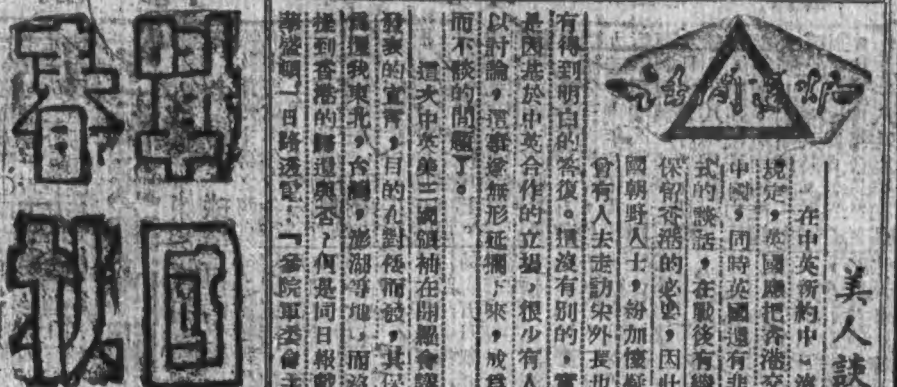 美人談
在中英新約中
規定，英國應把香港交
中國，同時英國還有非
式的談話，在戰後有繼
保留香港的必要，因此
國朝野人士，紛加懷疑
曾有人去走訪宋外長也
有得到明白的答復。這沒有別的，實
是因基於中英合作的立場，很少有人
以討論，這事遂無形延擱下來，成爲
而不談的問題了。
這次中英美三國領袖在開羅會議
發表的宣言，目的在對倭而發，其
我東北，台灣，澎湖等地，而沒
提到香港的歸還與否？但是同日報載
華盛頓一日路透電：「參院軍委會主
國
春秋